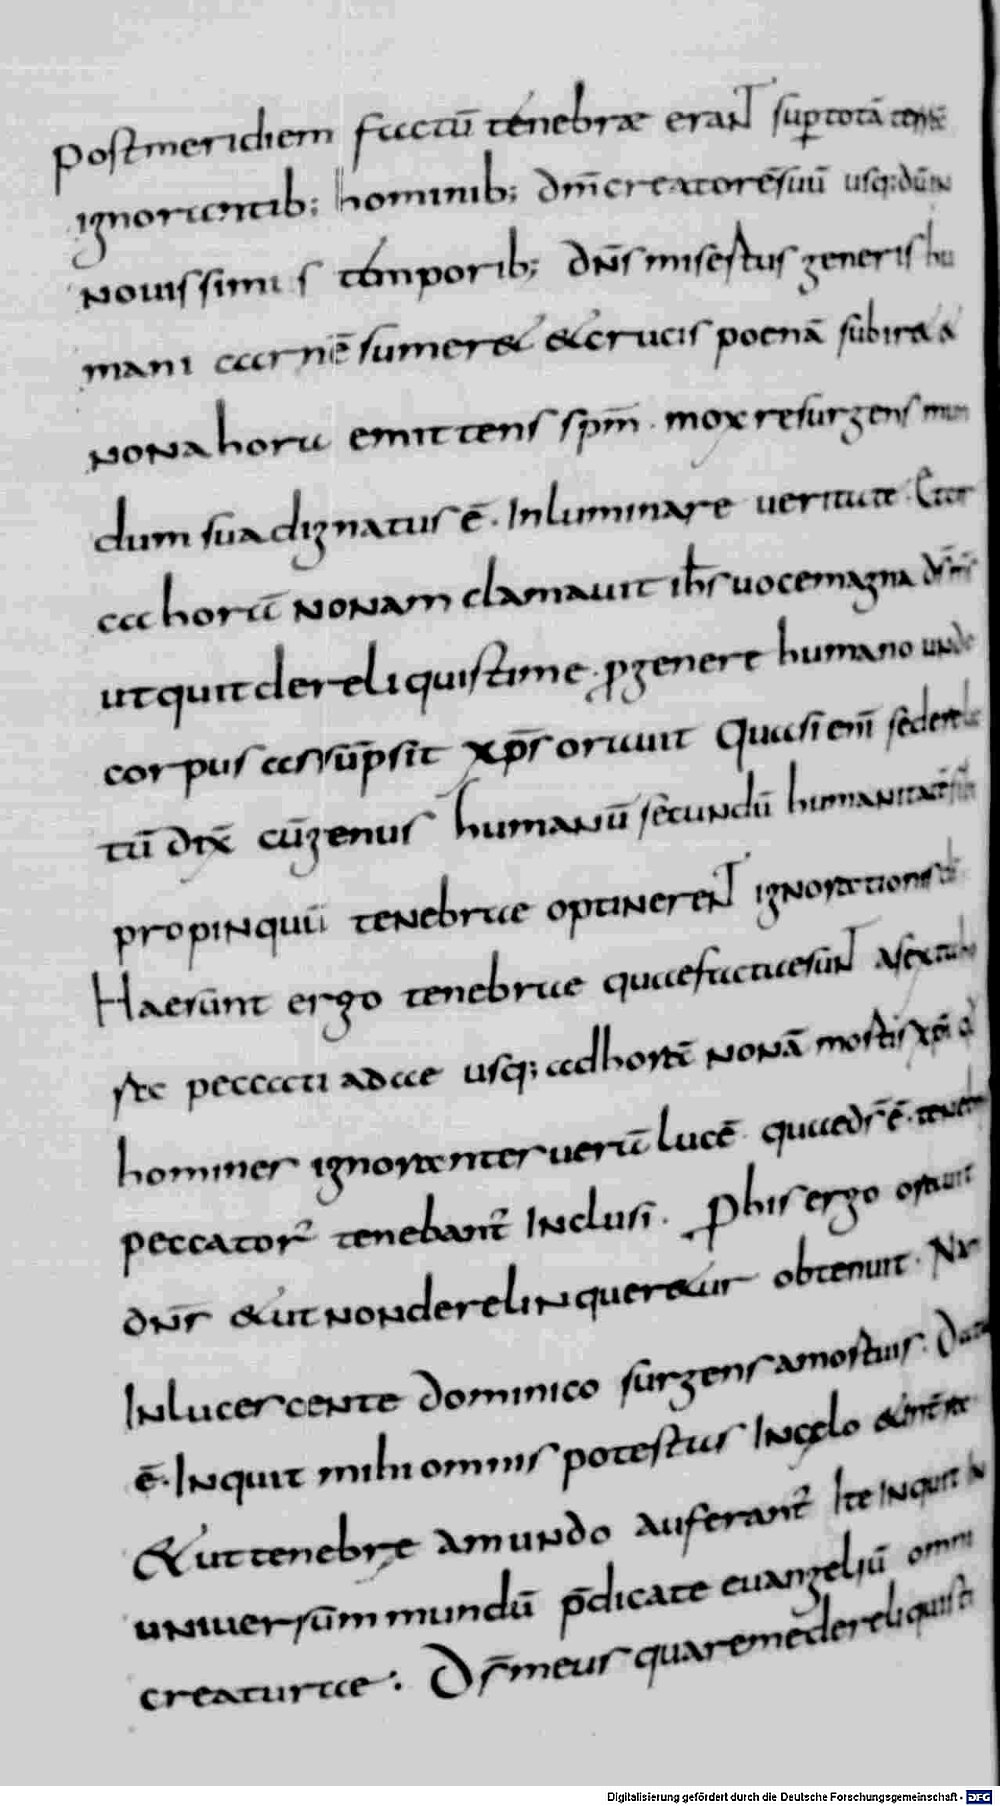 postmeridiem factū tenebrae erant sup totā terrā
ignorantib; hominib; dm̄ creatorē suū usq; dū in
nouissimis temporib; dns̄ misertus generis hu
mani carnē sumeret & crucis poenā subiret a
nona hora emittens sp̄m. mox resurgens mun
dum sua dignatus ē. Inluminare ueritate. Et cir
ca horā nonam clamauit ih̄s uoce magna ds̄ ms̄
ut quit dereliquisti me. p genere humano unde
corpus assūpsit xp̄s orauit Quasi enī
tū dix̄ cū genus humanū secundū humanitatē sibi
propinquū tenebrae optinerent ignorationis
Haec sunt ergo tenebrae quae factae sunt a sexta ho
peccati adae usq; ad horā nonā mortis xp̄i qd
homines ignorantes uerū lucē quae ds̄ ē. tenebris
peccator̄ tenebant̄ Inclusi. P his ergo orauit
dns̄ & ut non derelinquerentur obtenuit. Nā
Inlucescente dominico surgens a mortuis. Data
ē. Inquit mihi omnis potestas In cęlo & in terra
& ut tenebrę a mundo auferant̄ Ite Inquit In
uniuersūm mundū p̄dicate euangeliū omni
creaturae. Ds̄ meus quare me dereliquisti